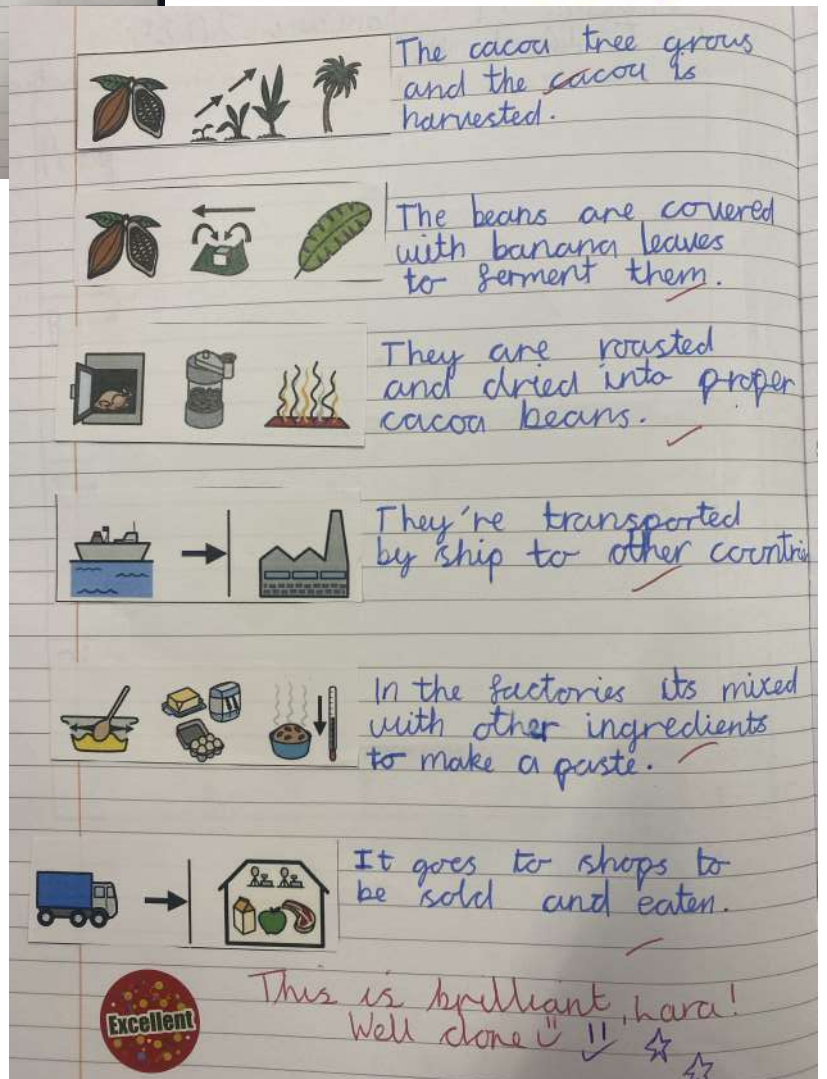 The cacoa tree grows
and the cacoa is
harvested.
The beans are covered
with banana leaves
to ferment them.
They are roasted
and dried into proper
cacoa beans.
They're transported
by ship to other countrie
In the factories its mixed
with other ingredients
to make a paste.
It goes to shops to
be sold and eaten.
Excellent
This is brilliant, Lara!
Well done